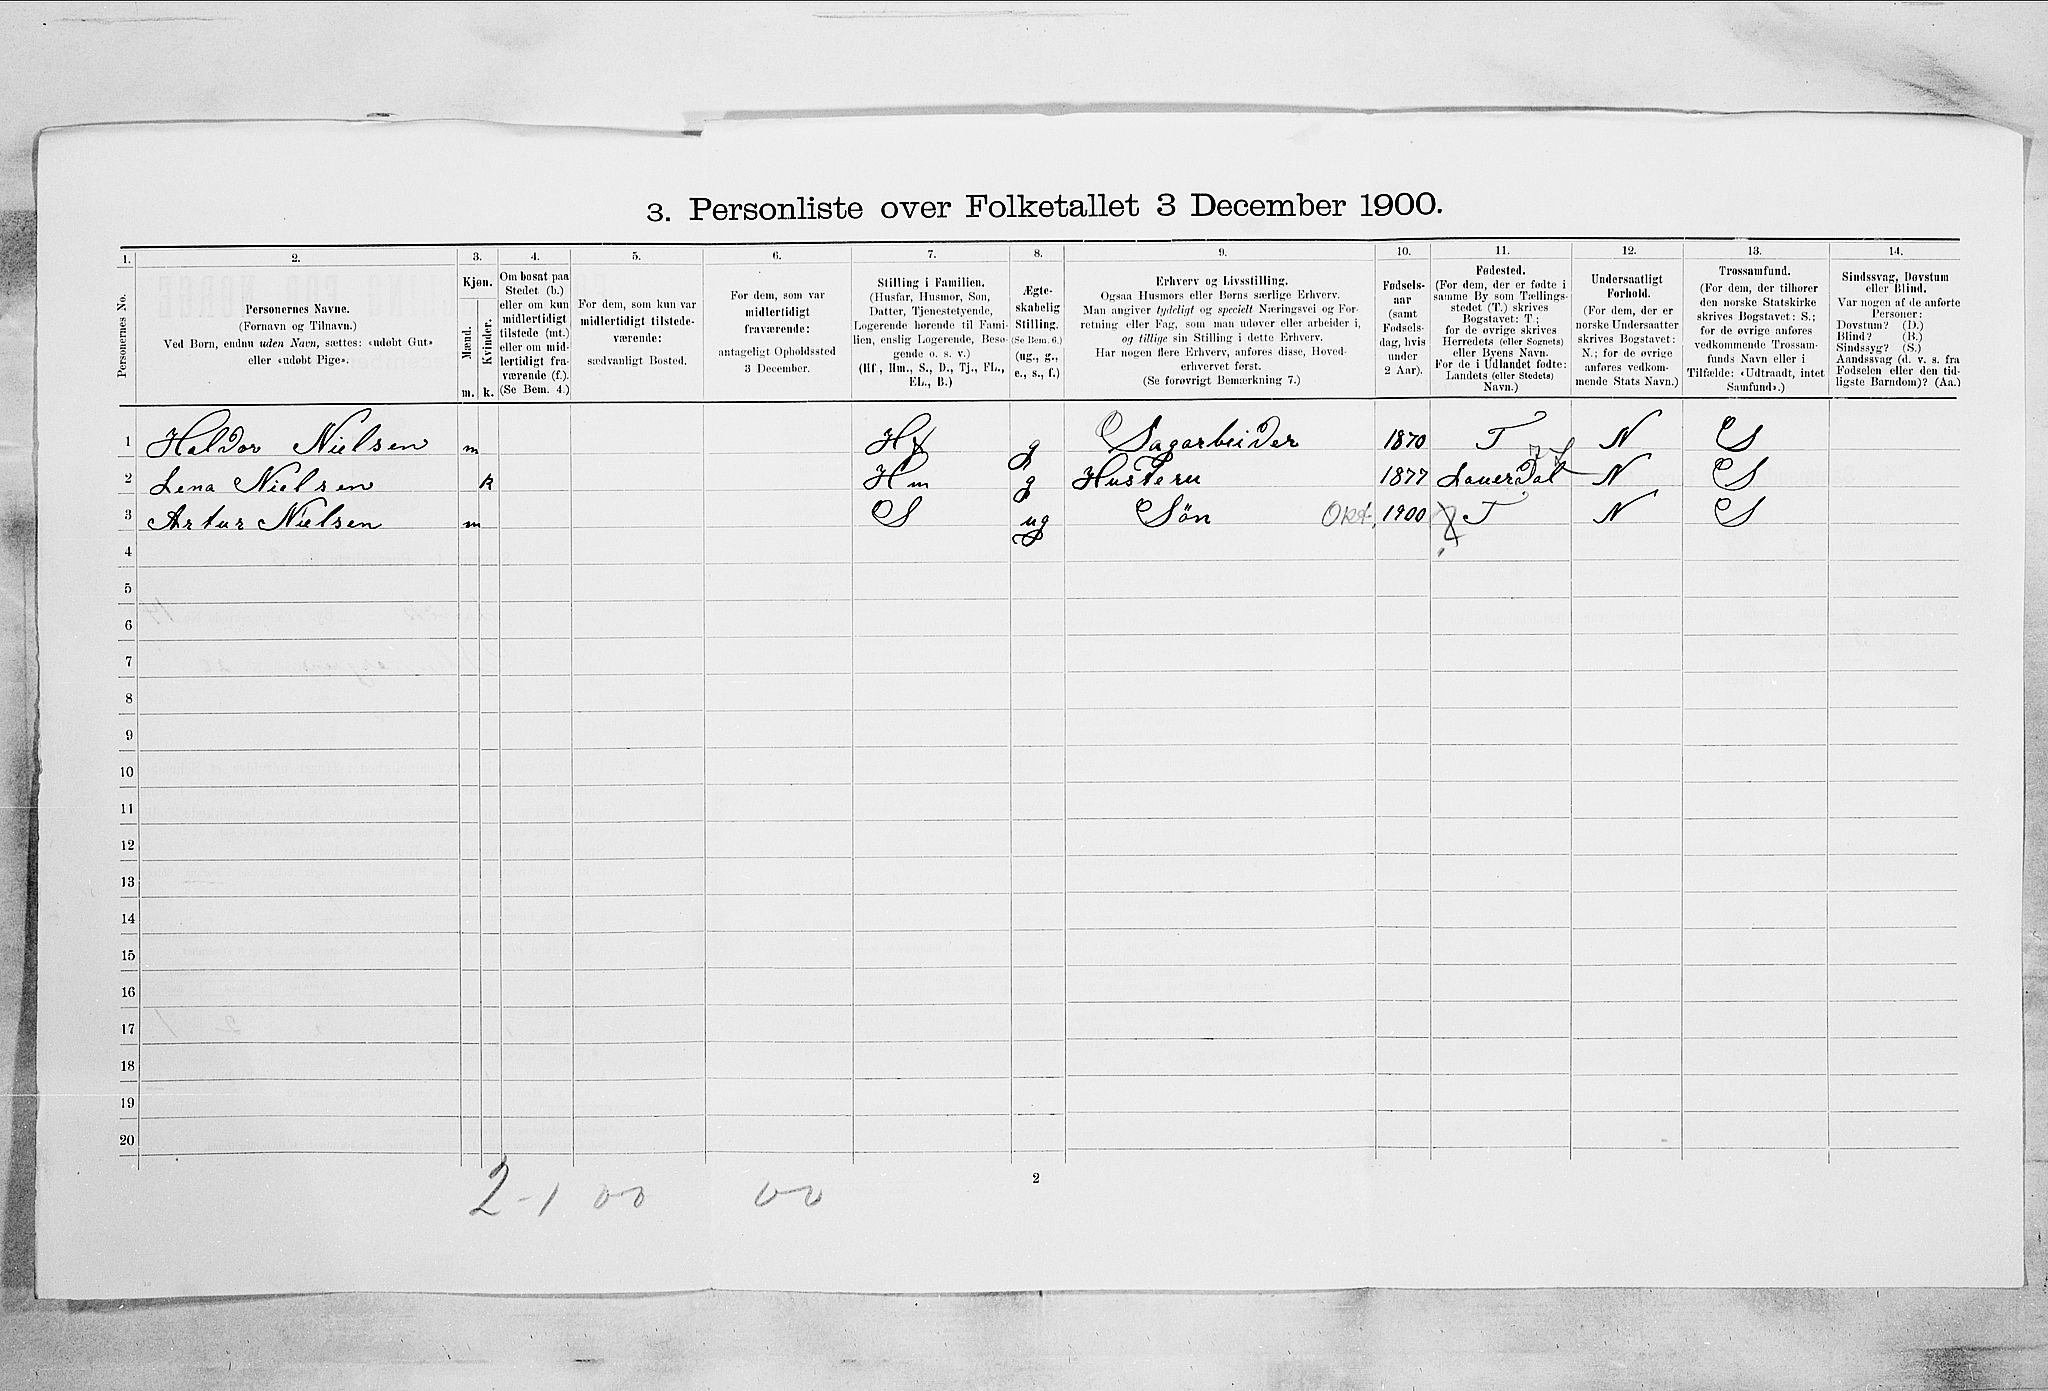 3. Personliste over Folketallet 3 December 1900.
1. 2. 3. 4. 5. 6. 7. 8. 9. 10. 11. 12. 13. 14.
Personernes No.
Personernes Navne.
(Fornavn og Tilnavn.)
Ved Børn, endnu uden Navn, sættes: «udøbt Gut»
eller «udøbt Pige».
Kjøn.
Mænd.
Kvinder.
m. k.
Om bosat paa
Stedet (b.)
eller om kun
midlertidigt
tilstede (mt.)
eller om mid-
lertidigt fra-
værende (f.).
(Se Bem. 4.)
For dem, som kun var
midlertidigt tilstede-
værende:
sædvanligt Bosted.
For dem, som var
midlertidigt
fraværende:
antageligt Opholdssted
3 December.
Stilling i Familien.
(Husfar, Husmor, Søn,
Datter, Tjenestetyende,
Logerende hørende til Fami-
lien, enslig Logerende, Besø-
gende o. s. v.)
(Hf., Hm., S., D., Tj., FL.,
EL., B.)
Ægte-
skabelig
Stilling.
(Se Bem. 6.)
(ug., g.,
e., s., f.)
Erhverv og Livsstilling.
Ogsaa Husmors eller Børns særlige Erhverv.
Man angiver tydeligt og specielt Næringsvei og For-
retning eller Fag, som man udøver eller arbeider i,
og tillige sin Stilling i dette Erhverv.
Har nogen flere Erhverv, anføres disse, Hoved-
erhvervet først.
(Se forøvrigt Bemærkning 7.)
Fødsels-
aar
(samt
Fødsels-
dag, hvis
under
2 Aar).
Fødested.
(For dem, der er fødte i
samme By som Tællings-
stedet (T.) skrives
Bogstavet: T.;
for de øvrige skrives
Herredets (eller Sognets)
eller Byens Navn.
For de i Udlandet fødte:
Landets (eller Stedets)
Navn.)
Undersaatligt
Forhold.
(For dem, der er
norske Undersaatter
skrives Bogstavet:
N.; for de øvrige
anføres vedkom-
mende Stats Navn.)
Trossamfund.
(For dem, der tilhører
den norske Statskirke
skrives Bogstavet: S.;
for de øvrige anføres
vedkommende Trossam-
funds Navn eller i
Tilfælde: «Udtraadt, intet
Samfund».)
Sindssvag, Døvstum
eller Blind.
Var nogen af de anførte
Personer:
Døvstum? (D.)
Blind? (B.)
Sindssyg? (S.)
Aandssvag (d. v. s. fra
Fødselen eller den tid-
ligste Barndom)? (Aa.)
1 Haldor Nielsen m Hf g Sagarbeider 1870 T N S
2 Lena Nielsen k Hm g Hustru 1877 Lauerdal N S
3 Artur Nielsen m S ug Søn Okt. 1900 T N S
4
5
6
7
8
9
10
11
12
13
14
15
16
17
18
19
20
2-1 00 00
2